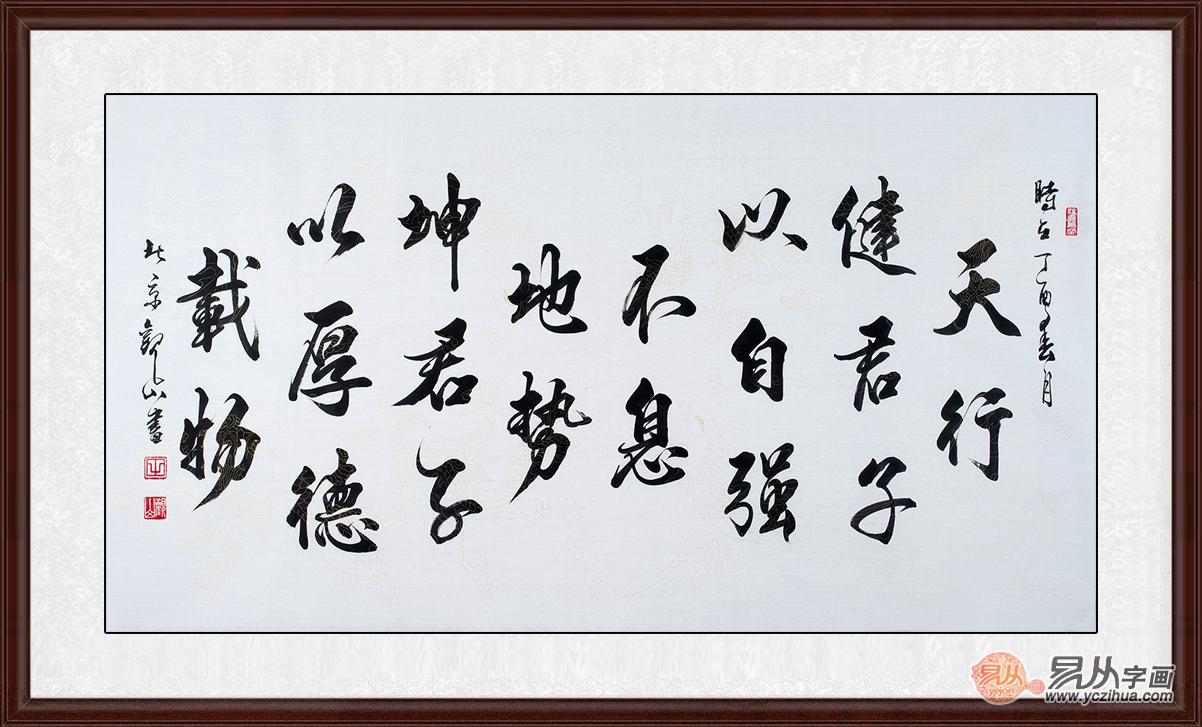 時在丁酉春月
天行
健君子
以自强
不息
地势
坤君子
以厚德
載物
北京観山書
易从
yicong
易从字画
www.yczihua.com